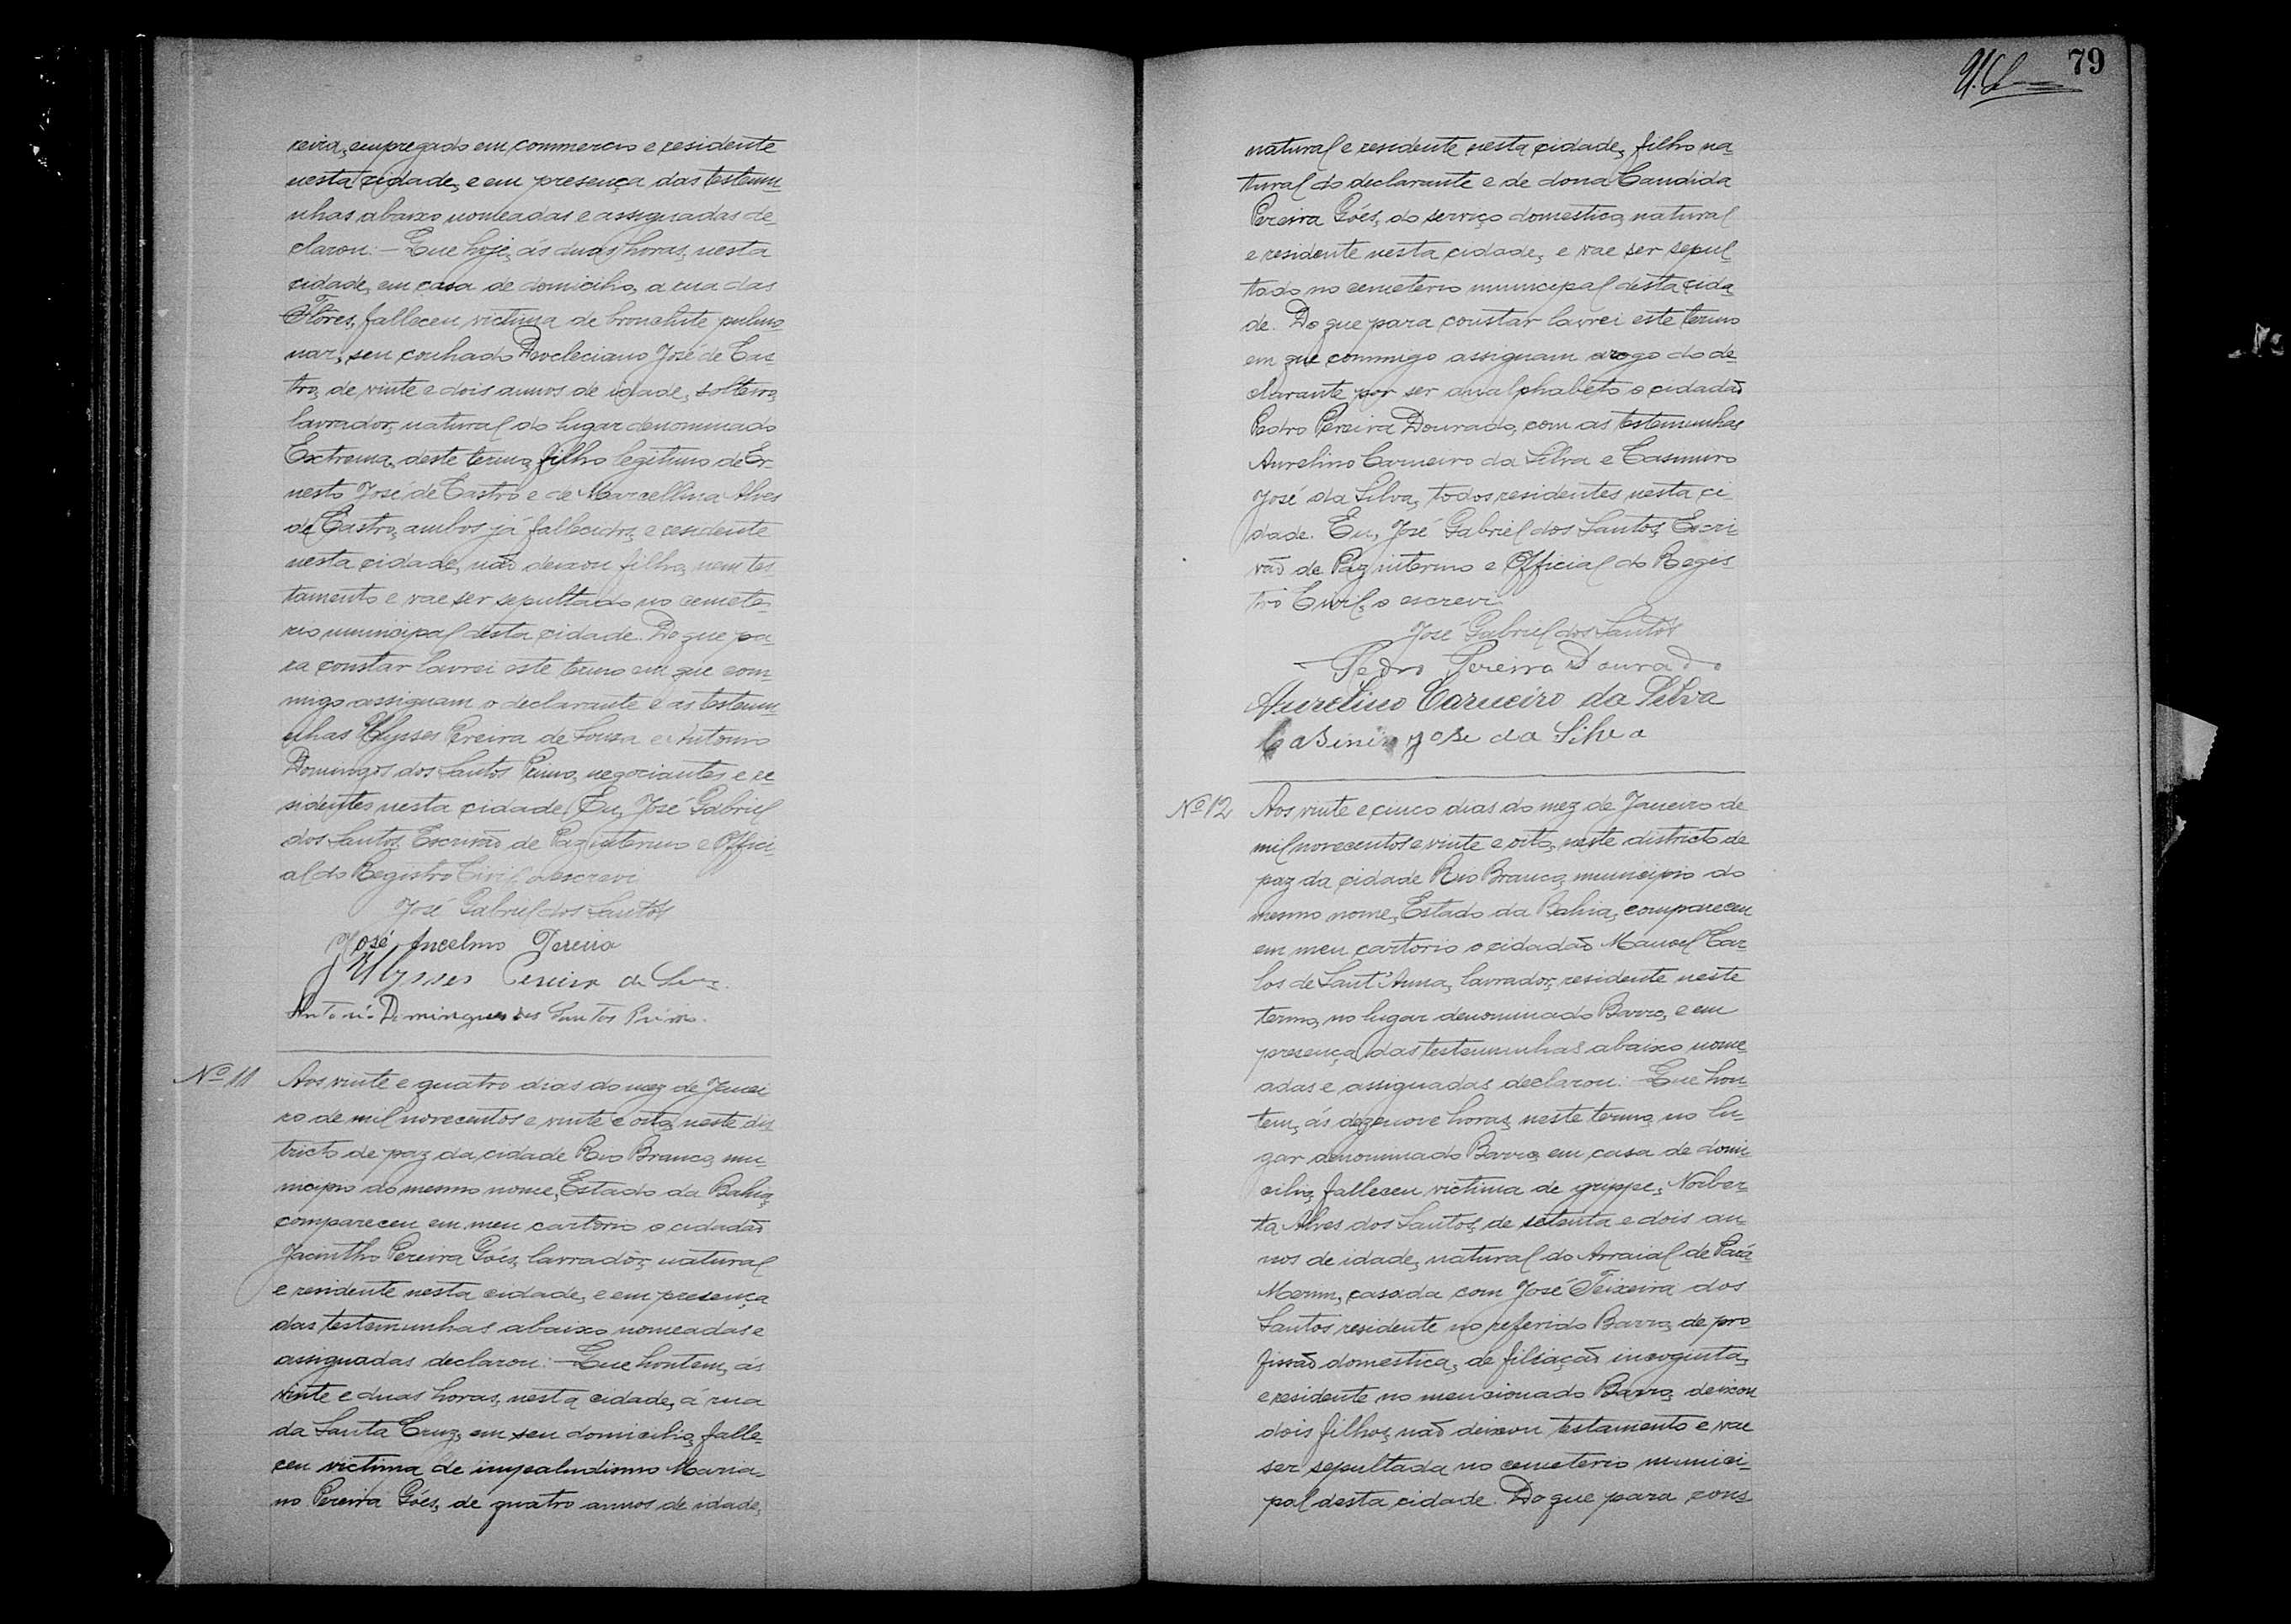 reira, empregado em commercio e residente
nesta cidade, e em presença das testemu-
nhas abaixo nomeadas e assignadas de-
clarou:— Que hoje, ás duas horas, nesta
cidade, em casa de domicilio, a rua das
Flôres, falleceu victima de bronchite pulmo-
nar, seu cunhado Deocleciano José de Cas-
tro, de vinte e dois annos de idade, solteiro,
lavrador, natural do lugar denominado
Extrema, deste termo, filho legitimo de Er-
nesto José de Castro e de Marcellina Alves
de Castro, ambos já fallecidos, e residente
nesta cidade, não deixou filho, nem tes-
tamento e vae ser sepultado no cemete-
rio municipal desta cidade. Do que pa-
ra constar lavrei este termo em que com-
migo assignam o declarante e as testemu-
nhas Ulysses Pereira de Souza e Antonio
Domingos dos Santos Primo, negociantes e re-
sidentes nesta cidade. Eu, José Gabriel
dos Santos, Escrivão de Paz interino e Offici-
al do Registro Civil, o escrevi.
José Gabriel dos Santos
José Ancelmo Pereira
Ulysses Pereira de Souza
Antonio Domingues dos Santos Primo.
Nº 11 Aos vinte e quatro dias do mez de Janei-
ro de mil novecentos e vinte e oito, neste dis-
tricto de paz da cidade Rio Branco, mu-
nicipio do mesmo nome, Estado da Bahia,
compareceu em meu cartorio o cidadão
Jacintho Pereira Góes, lavrador, natural
e residente nesta cidade, e em presença
das testemunhas abaixo nomeadas e
assignadas declarou:— Que hontem, ás
vinte e duas horas, nesta cidade, á rua
da Santa Cruz, em seu domicilio, falle-
ceu victima de impaludismo Maria-
no Pereira Góes, de quatro annos de idade,
79
natural e residente nesta cidade, filho na-
tural do declarante e de dona Candida
Pereira Góes, do serviço domestico, natural
e residente nesta cidade, e vae ser sepul-
tado no cemeterio municipal desta cida-
de. Do que para constar lavrei este termo
em que commigo assignam arogo do de-
clarante por ser analphabeto o cidadão
Pedro Pereira Dourado, com as testemunhas
Aurelino Carneiro da Silva e Casimiro
José da Silva, todos residentes nesta ci-
dade. Eu, José Gabriel dos Santos, Escri-
vão de Paz interino e Official do Regis-
tro Civil, o escrevi.
José Gabriel dos Santos
Pedro Pereira Dourado
Aurelino Carneiro da Silva
Casimiro jose da Silva
Nº 12 Aos vinte e cinco dias do mez de Janeiro de
mil novecentos e vinte e oito, neste districto de
paz da cidade Rio Branco, municipio do
mesmo nome, Estado da Bahia, compareceu
em meu cartorio o cidadão Manoel Car-
los de Sant'Anna, lavrador, residente neste
termo, no lugar denominado Barro, e em
presença das testemunhas abaixo nome-
adas e assignadas declarou:— Que hon-
tem, ás dezenove horas, neste termo, no lu-
gar denominado Barro, em casa de domi-
cilio, falleceu victima de grippe, Norber-
ta Alves dos Santos, de setenta e dois an-
nos de idade, natural do Arraial de Pará-
Merim, casada com José Teixeira dos
Santos residente no referido Barro, de pro-
fissão domestica, de filiação incognita,
e residente no mencionado Barro, deixou
dois filhos, não deixou testamento e vae
ser sepultada no cemeterio munici-
pal desta cidade. Do que para cons-